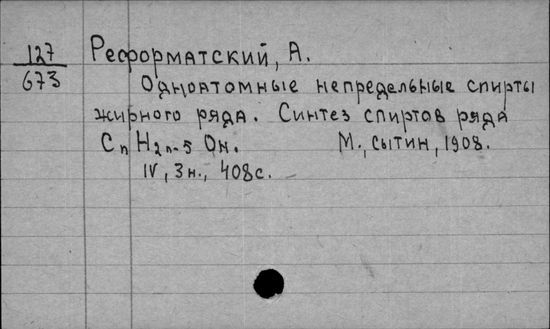 127
673
Реформатский, А.
Одноатомные непредельные спирты
жирного ряда. Синтез спиртов ряда
CnH2n-5 Он. М., Сытин, 1908.
IV, 3н., 408с.